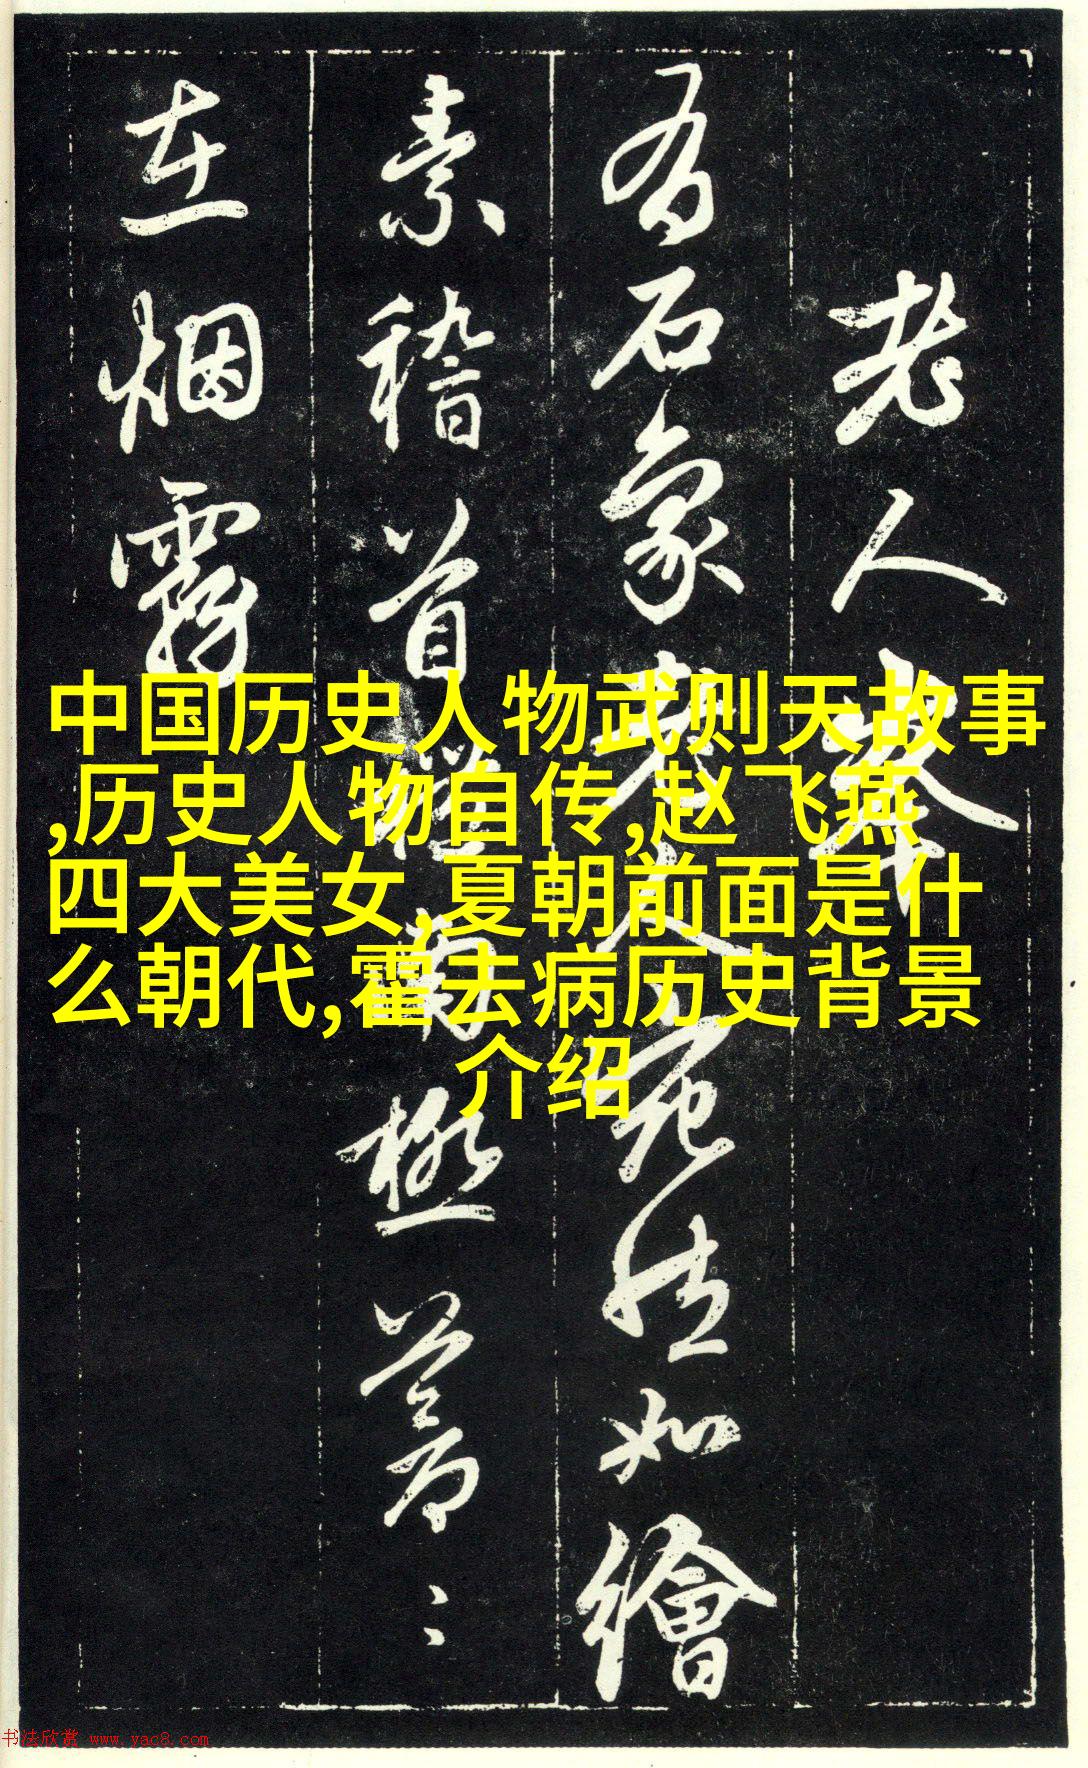 老人峯
有石象老人宛如繪
素稽首禮南極蒼
在烟霧
中国历史人物武则天故事
,历史人物自传,赵飞燕
四大美女,夏朝前面是什
么朝代,霍去病历史背景
介绍
书法欣赏 www.yac8.com